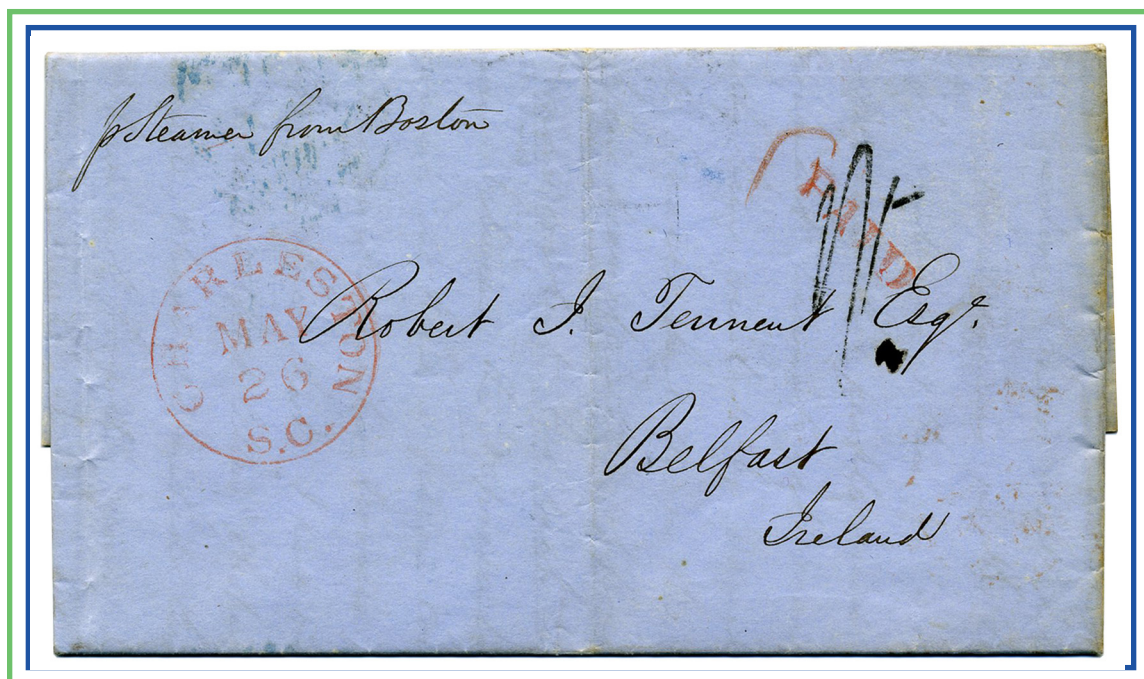 p Steamer from Boston
PAID
CHARLESTON
MAY
26
S.C.
Robert J. Tennent Esqr.
Belfast
Ireland